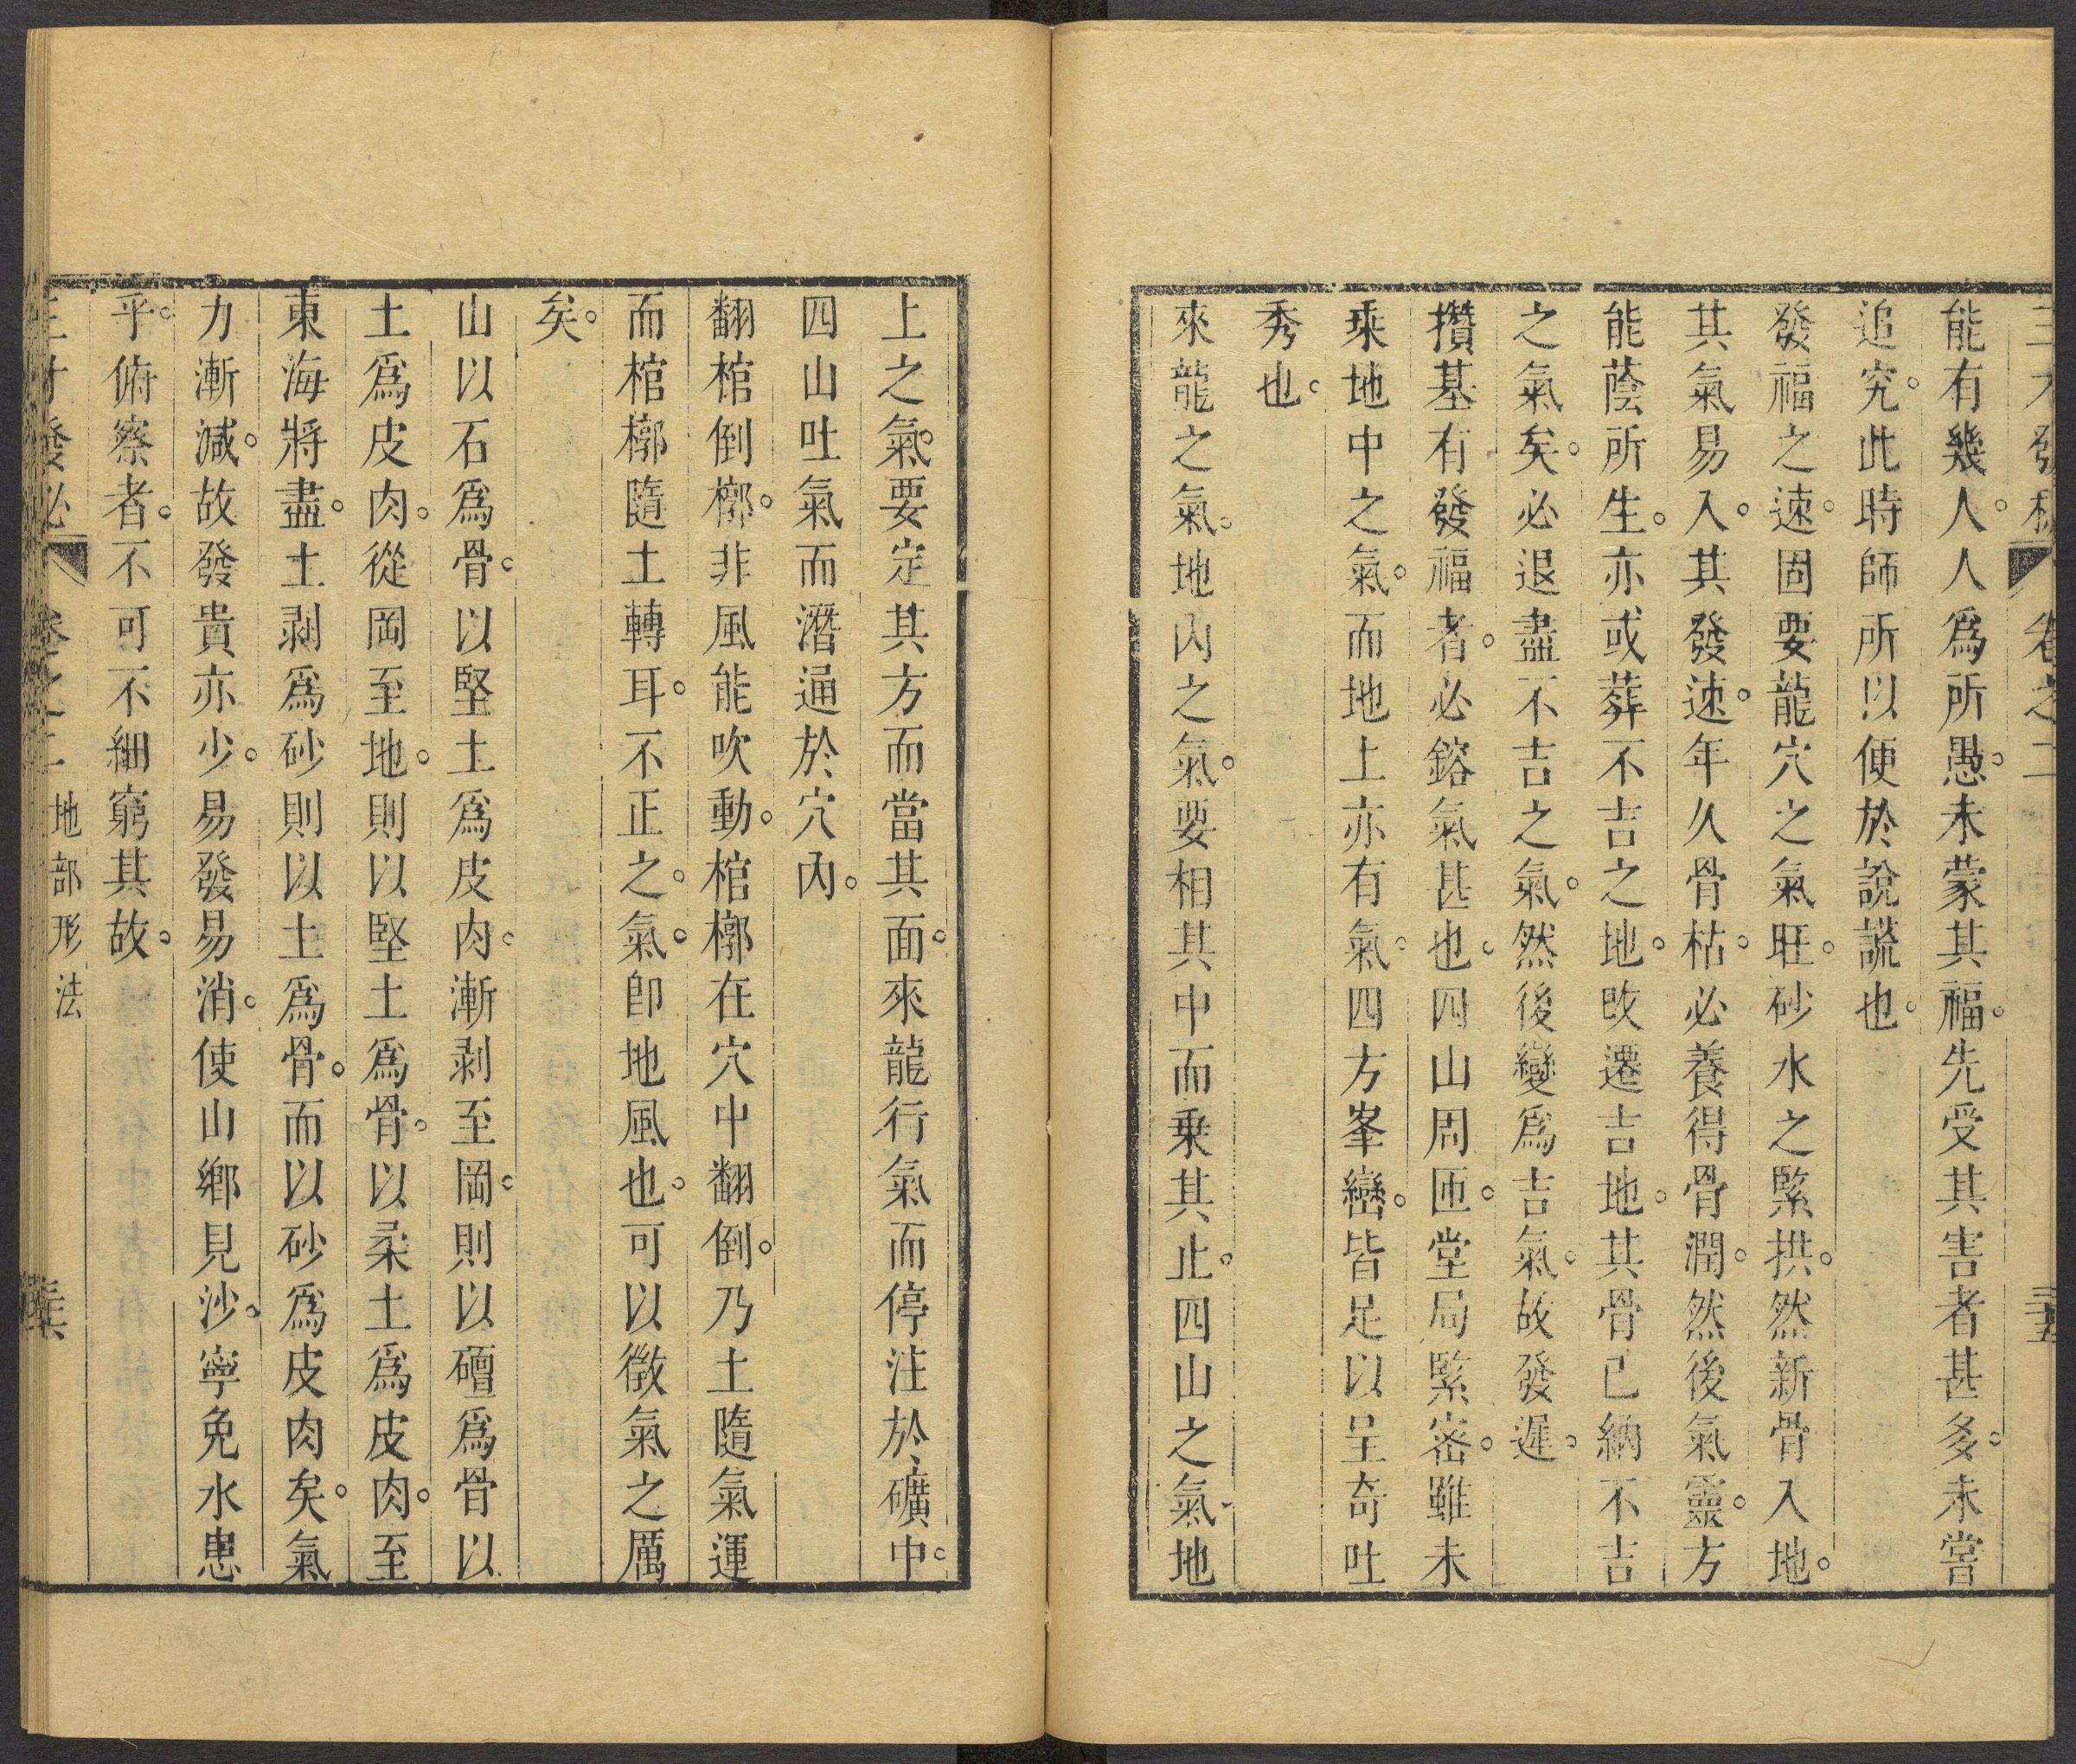 能有幾人。人爲所愚。未蒙其福。先受其害者甚多。未嘗
追究。此時師所以便於說謊也。
發福之速。固要龍穴之氣旺。砂水之緊拱。然新骨入地。
其氣易入。其發速。年久骨枯。必養得骨潤。然後氣靈。方
能蔭所生。亦或葬不吉之地。改遷吉地。其骨已納不吉
之氣矣。必退盡不吉之氣。然後變爲吉氣。故發遲。
攢基有發福者。必鎔氣甚也。四山周匝。堂局緊密。雖未
乘地中之氣。而地上亦有氣。四方峯巒。皆足以呈奇吐
秀也。
來龍之氣。地內之氣。要相其中而乘其止。四山之氣、地
上之氣。要定其方而當其面。來龍行氣而停注於礦中。
四山吐氣而潛通於穴內。
翻棺倒槨。非風能吹動。棺槨在穴中翻倒。乃土隨氣運
而棺槨隨土轉耳。不正之。氣。卽地風也。可以徵氣之厲
矣。
山以石爲骨。以堅土爲皮肉。漸剥至岡。則以礓爲骨以
土爲皮肉。從岡至地。則以堅土爲骨。以柔土爲皮肉。至
東海將盡。土剥爲砂則以土爲骨。而以砂爲皮肉矣。氣
力漸減。故發貴亦少。易發易消。使山鄉見沙。寧免水患
乎。俯察者。不可不細窮其故。
卷之二 地部形法